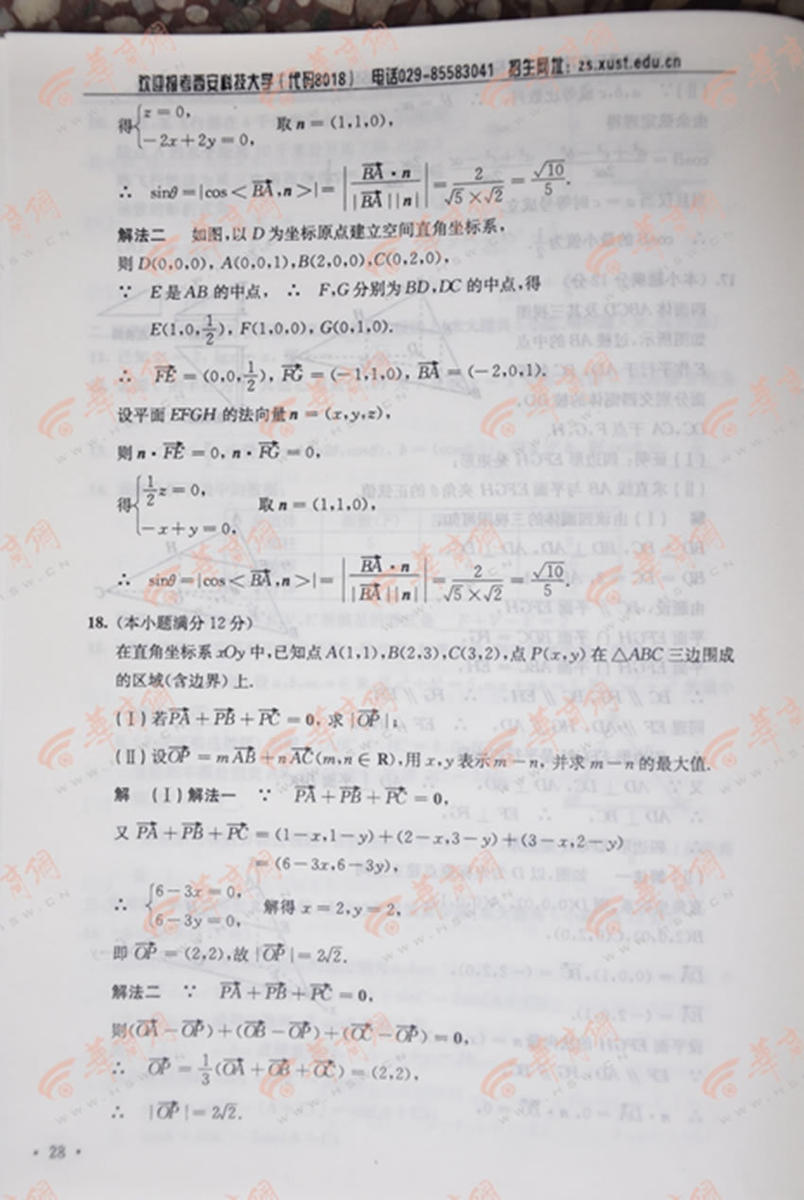 欢迎报考西安科技大学(代码8018) 电话029-85583041 招生网址:zs.xust.edu.cn
得{z=0, -2x+2y=0, 取n=(1,1,0),
∴ sinθ=|cos<BA→,n>|=|BA→·n/|BA→||n||=2/(√5×√2)=√10/5.
解法二 如图,以D为坐标原点建立空间直角坐标系,
则D(0,0,0), A(0,0,1),B(2,0,0),C(0,2,0),
∵ E是AB的中点, ∴ F,G分别为BD,DC的中点,得
E(1,0,1/2), F(1,0,0), G(0,1,0).
∴ FE→=(0,0,1/2), FG→=(-1,1,0), BA→=(-2,0,1).
设平面EFGH的法向量n=(x,y,z),
则n·FE→=0,n·FG→=0,
得{1/2z=0, -x+y=0, 取n=(1,1,0),
∴ sinθ=|cos<BA→,n>|=|BA→·n/|BA→||n||=2/(√5×√2)=√10/5.
18. (本小题满分12分)
在直角坐标系xOy中,已知点A(1,1),B(2,3),C(3,2),点P(x,y)在△ABC三边围成
的区域(含边界)上.
(Ⅰ)若PA→+PB→+PC→=0,求|OP→|;
(Ⅱ)设OP→=mAB→+nAC→(m,n∈R),用x,y表示m-n,并求m-n的最大值.
解 (Ⅰ)解法一 ∵ PA→+PB→+PC→=0,
又PA→+PB→+PC→=(1-x,1-y)+(2-x,3-y)+(3-x,2-y)
=(6-3x,6-3y),
∴ {6-3x=0, 6-3y=0, 解得x=2,y=2,
即OP→=(2,2),故|OP→|=2√2.
解法二 ∵ PA→+PB→+PC→=0,
则(OA→-OP→)+(OB→-OP→)+(OC→-OP→)=0,
∴ OP→=1/3(OA→+OB→+OC→)=(2,2),
∴ |OP→|=2√2.
·28·